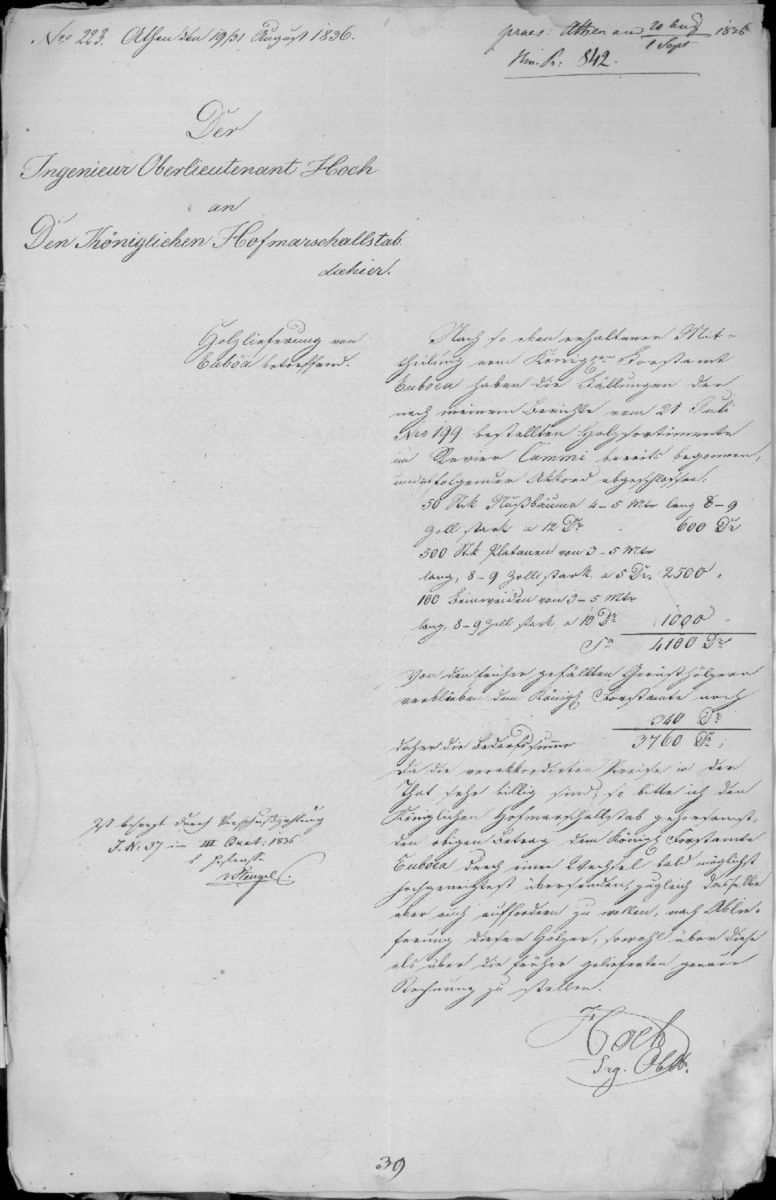 Nro 223. Athen den 19/31 August 1836.
praes: Athen am 20 Aug / 1 Sept 1836
Nro. Pr: 842.
Der
Ingenieur Oberlieutenant Hoch
an
Den Königlichen Hofmarschallstab
dahier.
Holzlieferung von
Euböa betreffend.
Nach so eben erhaltener Mit-
theilung vom Königlen Forstamt
Euboea haben die Fällungen der
nach meinem Berichte vom 21 Juli
Nro 199 bestellten Holzsortimente
im Revier Cammi bereits begonnen,
und folgender Akkord abgeschlossen:
50 Stk Nußbäume 4-5 Mtr lang 8-9
Zoll stark a 12 Dr 600 Dr
500 Stk Platanen von 3-5 Mtr
lang, 8-9 Zoll stark a 5 Dr. 2500 "
100 Beinweiden von 3-5 Mtr
lang, 8-9 Zoll stark a 10 Dr 1000 "
Sa 4100 Dr
Von den früher gefällten Gerüsthölzern
verblieben dem Königl Forstamte noch
340 Dr
daher die Bedarfssumme 3760 Dr;
Da die verakkordirten Preise in der
That sehr billig sind, so bitte ich den
Königlichen Hofmarschallstab gehorsamst,
den obigen Betrag dem Königl Forstamte
Euboea durch einen Wechsel bald möglichst
hochgeneigtest übersenden, zugleich dasselbe
aber auch auffordern zu wollen, nach Ablie-
ferung dieser Hölzer, sowohl über diese
als über die früher gelieferten genaue
Rechnung zu stellen.
Hoch
Ing. Oblt.
Ist besorgt durch Vorschußzahlung
J. N. 37 im III Quart: 1836
39